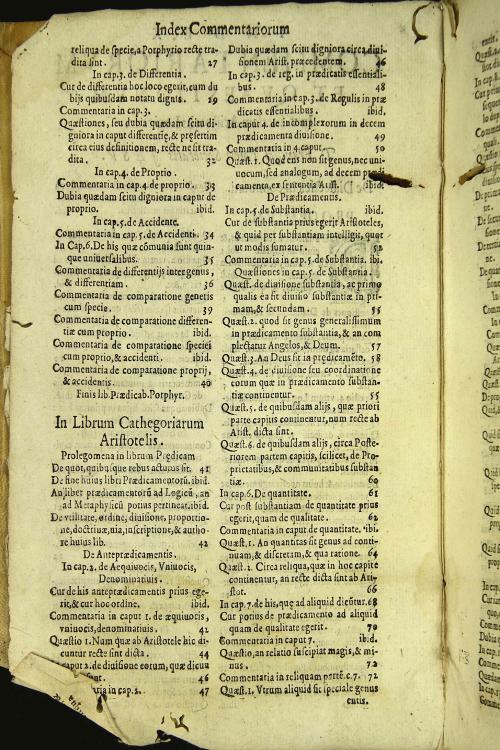 Index Commentariorum
reliqua de specie, a Porphyrio recte tra-
dita sint. 27
In cap. 3. de Differentia.
Cur de differentia hoc loco egerit, cum du
bijs quibusdam notatu dignis. 29
Commentaria in cap. 3.
Quæstiones, seu dubia quædam scitu di-
gniora in caput differentię, & pręsertim
circa eius definitionem, recte ne sit tra-
dita. 32
In cap. 4. de Proprio.
Commentaria in cap. 4. de proprio. 33
Dubia quædam scitu digniora in caput de
proprio. ibid.
In cap. 5. de Accidente.
Commentaria in cap. 5. de Accidenti. 34
In Cap. 6. De his quæ cōmunia sunt quin-
que uniuersalibus. 35
Commentaria de differentijs inter genus,
& differentiam. 36
Commentaria de comparatione generis
cum specie. 39
Commentaria de comparatione differen-
tiæ cum proprio. ibid.
Commentaria de comparatione speciei
cum proprio, & accidenti. ibid.
Commentaria de comparatione proprij,
& accidentis. 40
Finis lib. Prædicab. Porphyr.
In Librum Cathegoriarum
Aristotelis.
Prolegomena in librum Prædicam
De quot, quibusque rebus acturus sit. 41
De fine huius libri Prædicamentorū. ibid.
An liber prædicamentorū ad Logicū, an
ad Metaphysicū potius pertineat. ibid.
De vtilitate, ordine, diuisione, proportio-
ne, doctrina, via, inscriptione, & autho-
re huius lib. 42
De Anteprædicamentis.
In cap. 1. de Aequiuocis, Vniuocis,
Denominatiuis.
Cur de his anteprædicamentis prius ege-
rit, & cur hoc ordine. ibid.
Commentaria in caput 1. de æquiuocis,
vniuocis, denominatiuis. 42
Quæstio 1. Num quæ ab Aristotele hic di-
cuntur recte sint dicta. 44
caput 2. de diuisione eorum, quæ dicun
sunt. 46
in cap. 2. 47
Dubia quædam scitu digniora circa diui-
sionem Arist. præcedentem. 46
In cap. 3. de reg. in prædicatis essentiali-
bus. 48
Commentaria in cap. 3. de Regulis in præ
dicatis essentialibus. ibid.
In caput 4. de incomplexorum in decem
prædicamenta diuisione. 49
Commentaria in 4. caput. 50
Quæst. 1. Quod ens non sit genus, nec uni
uocum, sed analogum, ad decem prædi
camenta, ex sententia Arist. ibid.
De Prædicamentis.
In cap. 5. de Substantia. ibid.
Cur de substantia prius egerit Aristoteles,
& quid per substantiam intelligit, quot
ut modis sumatur. 52
Commentaria in cap. 5. de Substantia. ibi.
Quæstiones in cap. 5. de Substantia.
Quæst. de diuisione substantiæ, ac primo
qualis ea sit diuisio substantiæ in pri-
mam, & secundam. 55
Quæst. 2. quod sit genus generalissimum
in prædicamento substantiæ, & an com
plectatur Angelos, & Deum. 57
Quæst. 3. An Deus sit in prędicamēto. 58
Quæst. 4. de diuisione seu coordinatione
eorum quæ in prædicamento substan-
tiæ continentur. 55
Quæst. 5. de quibusdam alijs, quæ priori
parte capitis continentur, num recte ab
Arist. dicta sint.
Quæst. 6. de quibusdam alijs, circa Poste-
riorem partem capitis, scilicet, de Pro-
prietatibus, & communitatibus substan
tiæ. 60
In cap. 6. De quantitate. 61
Cur post substantiam de quantitate prius
egerit, quam de qualitate. 62
Commentaria in caput de quantitate. ibi.
Quæst. 1. An quantitas sit genus ad conti-
nuam, & discretam, & qua ratione. 64
Quæst. 2. Circa reliqua, quæ in hoc capite
continentur, an recte dicta sint ab Ari-
stot. 66
In cap. 7. de his, quę ad aliquid dicūtur. 68
Cur potius de prædicamento ad aliquid
quam de qualitate egerit. 70
Commentaria in caput 7. ibid.
Quæstio, an relatio suscipiat magis, & mi-
nus. 72
Commentaria in reliquam partē. c. 7. 72
Quæst. 1. Vtrum aliquid sit speciale genus
entis.